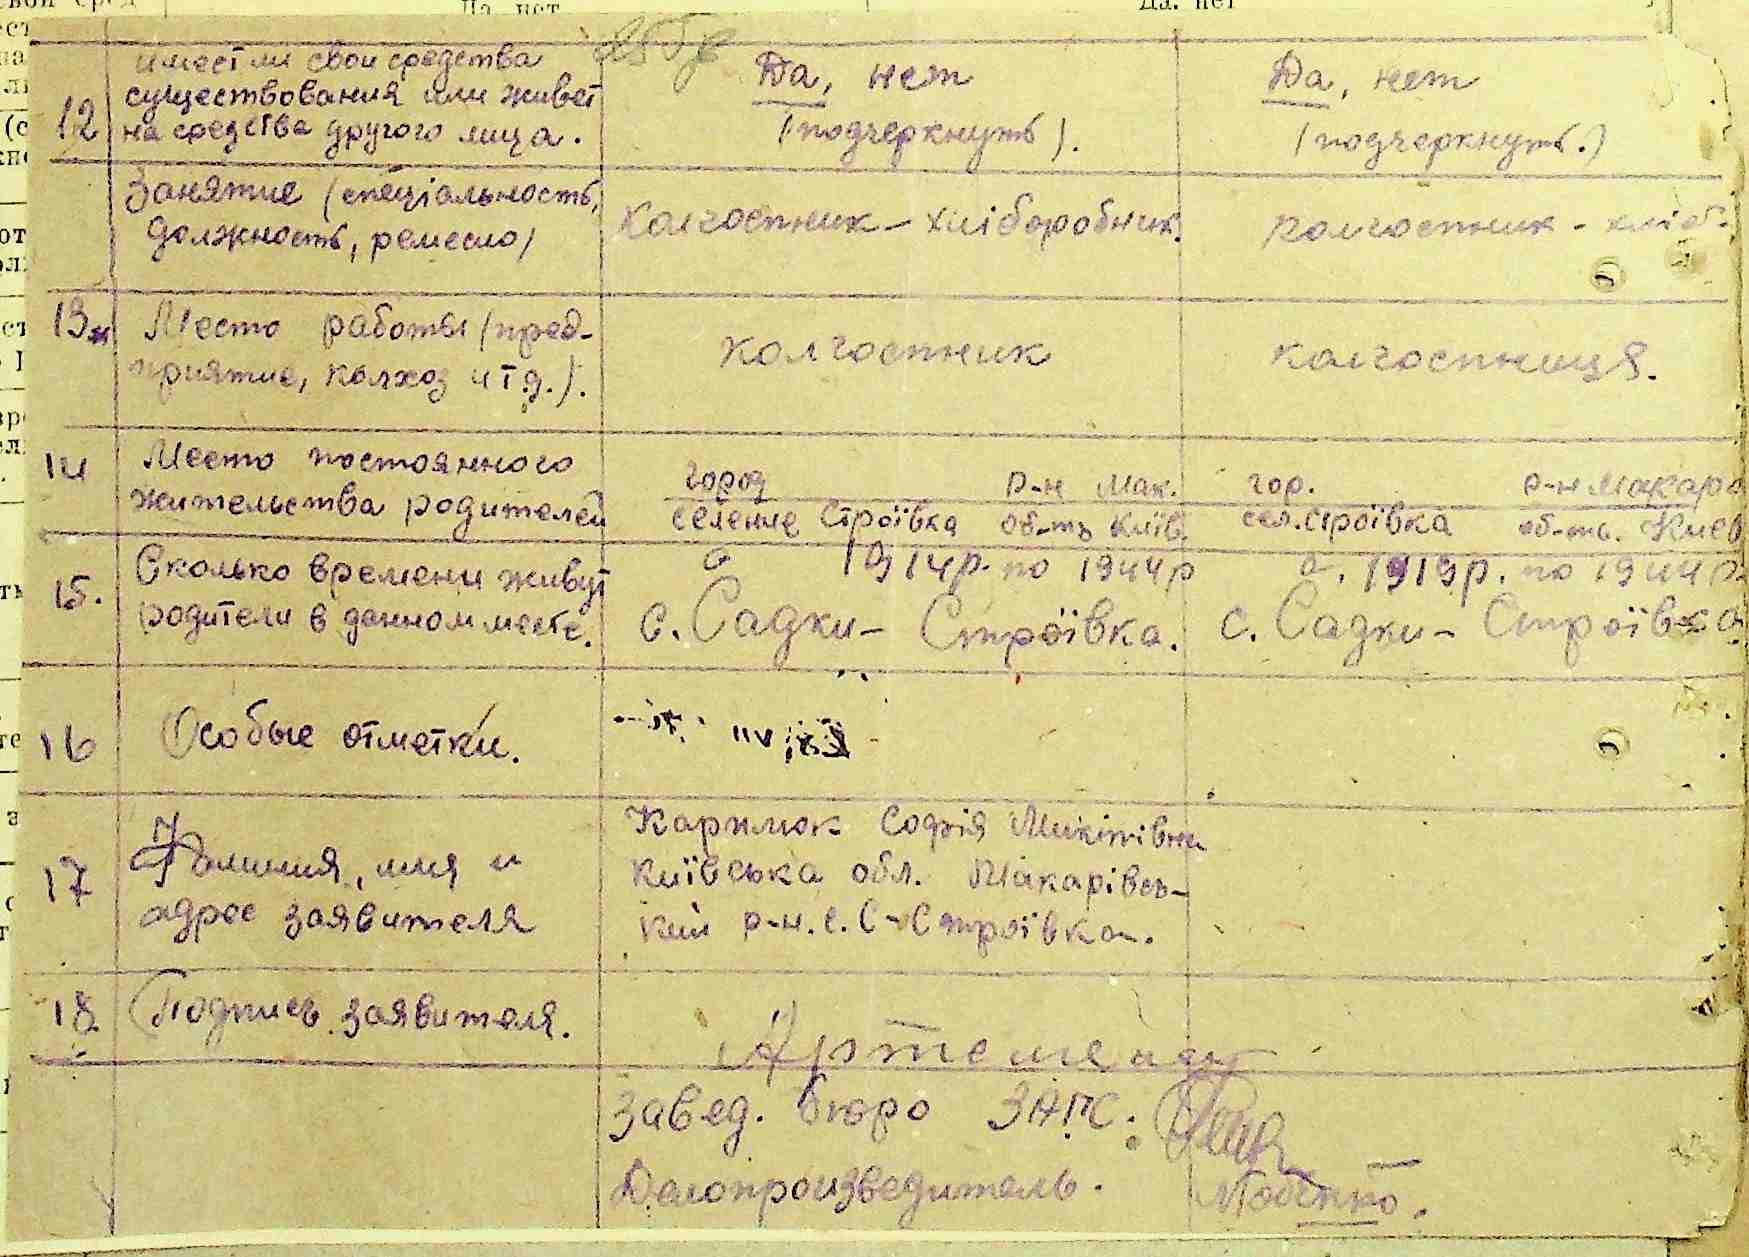 Да. нет
Да. нет
12
имеет ли свои средства
существования или живет
на средства другого лица.
Да, нет
(подчеркнуть).
Да, нет
(подчеркнуть.)
Занятие (спеціальность,
должность, ремесло)
Колгоспник - хліборобник.
колгоспник - хліб.
13
Место работы (пред-
приятие, колхоз и т.д.).
колгоспник
колгоспниця.
14
Место постоянного
жительства родителей
город р-н Мак.
селение Строївка об-ть Київ.
гор. р-н Макаро
сел. Строївка об-ть. Киев
15.
Сколько времени живут
родители в данном месте.
с 1914р. по 1944р
с. Садки - Строївка.
с. 1919р. по 1944р.
с. Садки - Строївка.
16
Особые отметки.
17
Фамилия, имя и
адрес заявителя
Карплюк Софія Микитівна
Київська обл. Макарівсь-
кий р-н. с. С-Строївка.
18
Подпись заявителя.
Завед. бюро ЗАГС:
Делопроизводитель.